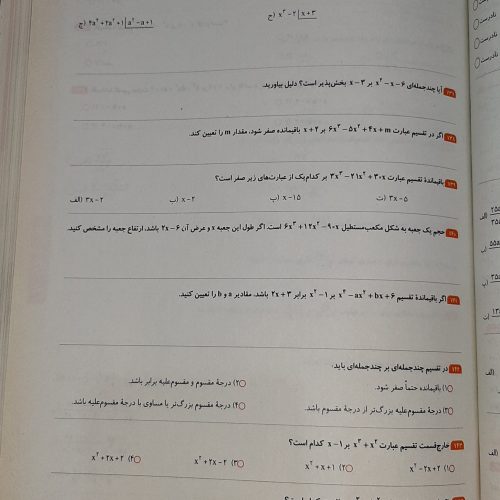 ج) x³ − ۲ | x + ۳
چ) ۴a³ + ۲a² + ۱ | a² − a + ۱
۱۳۷ آیا چندجمله‌ای x² − x − ۶ بر x − ۳ بخش‌پذیر است؟ دلیل بیاورید.
۱۳۸ اگر در تقسیم عبارت ۶x³ − ۵x² + ۴x + m بر x + ۲ باقیمانده صفر شود، مقدار m را تعیین کند.
۱۳۹ باقیماندهٔ تقسیم عبارت ۳x³ − ۲۱x² + ۳۰x بر کدام‌یک از عبارت‌های زیر صفر است؟
الف) ۳x − ۲ ب) x − ۲ پ) x − ۱۵ ت) ۳x − ۵
۱۴۰ حجم یک جعبه به شکل مکعب‌مستطیل ۶x³ + ۱۲x² − ۹۰x است. اگر طول این جعبه x و عرض آن ۲x − ۶ باشد، ارتفاع جعبه را مشخص کنید.
۱۴۱ اگر باقیماندهٔ تقسیم x⁴ − ax² + bx + ۶ بر x² − ۱ برابر ۲x + ۳ باشد، مقادیر a و b را تعیین کنید.
۱۴۲ در تقسیم چندجمله‌ای بر چندجمله‌ای باید:
۱) باقیمانده حتماً صفر شود. ۲) درجهٔ مقسوم و مقسوم‌علیه برابر باشد.
۳) درجهٔ مقسوم‌علیه بزرگ‌تر از درجهٔ مقسوم باشد. ۴) درجهٔ مقسوم بزرگ‌تر یا مساوی با درجهٔ مقسوم‌علیه باشد.
۱۴۳ خارج‌قسمت تقسیم عبارت x³ + x² بر x − ۱ کدام است؟
۱) x² − ۲x + ۲ ۲) x² + x + ۱ ۳) x² + ۲x − ۲ ۴) x² + ۲x + ۲
نادرست
نادرست
نادرست
الف)
ب)
پ)
ت)
الف)